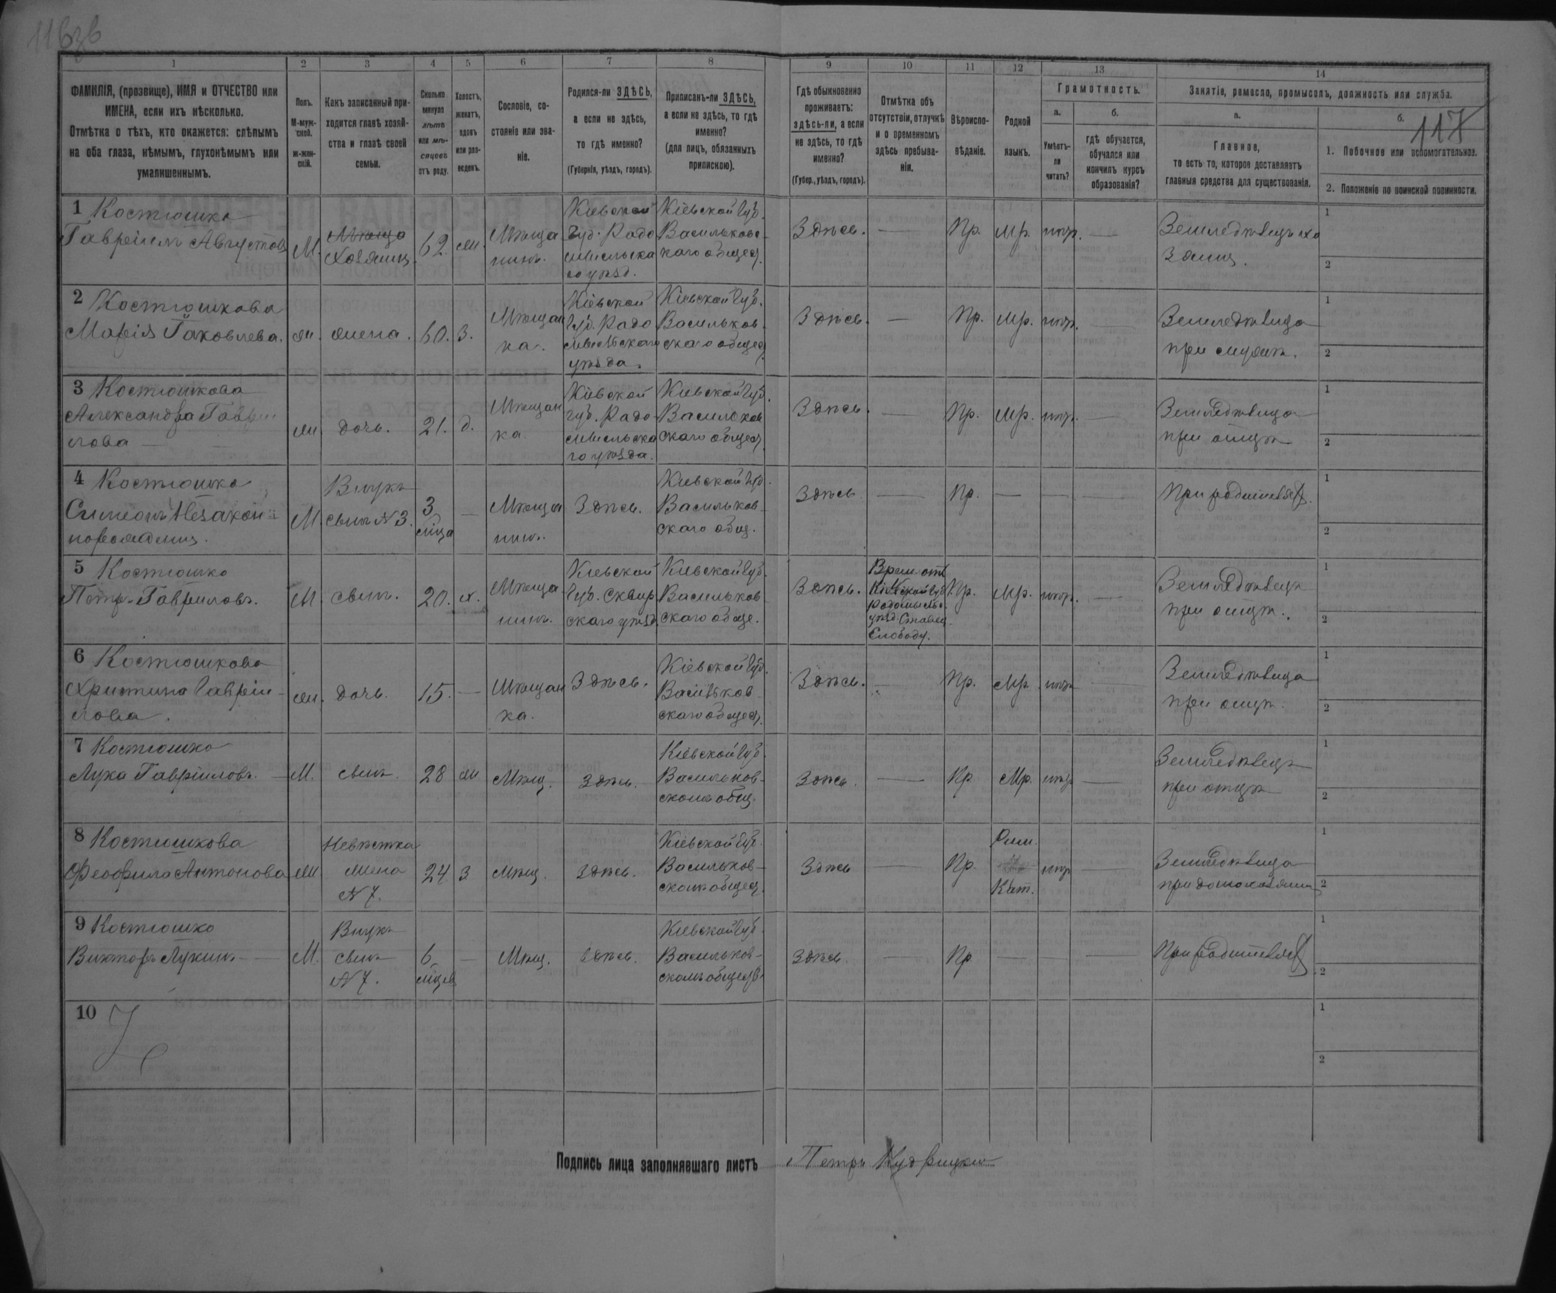 116зв
117
1
2
3
4
5
6
7
8
9
10
11
12
13
14
ФАМИЛІЯ, (прозвище), ИМЯ и ОТЧЕСТВО или
ИМЕНА, если ихъ нѣсколько.
Отмѣтка о тѣхъ, кто окажется: слѣпымъ
на оба глаза, нѣмымъ, глухонѣмымъ или
умалишеннымъ.
Полъ.
М-муж-
ской.
Ж-жен-
скій.
Какъ записанный при-
ходится главѣ хозяй-
ства и главѣ своей
семьи.
Сколько
минуло
лѣтъ
или мѣ-
сяцевъ
отъ роду.
Холостъ,
женатъ,
вдовъ
или раз-
веденъ.
Сословіе, со-
стояніе или зва-
ніе.
Родился-ли ЗДѢСЬ,
а если не здѣсь,
то гдѣ именно?
(Губернія, уѣздъ, городъ).
Приписанъ-ли ЗДѢСЬ,
а если не здѣсь, то гдѣ
именно?
(для лицъ, обязанныхъ
припискою).
Гдѣ обыкновенно
проживаетъ:
здѣсь-ли, а если
не здѣсь, то гдѣ
именно?
(Губер., уѣздъ, городъ).
Отмѣтка объ
отсутствіи, отлучкѣ
и о временномъ
здѣсь пребыва-
ніи.
Вѣроиспо-
вѣданіе.
Родной
языкъ.
Грамотность.
а.
Умѣетъ-
ли
читать?
б.
гдѣ обучается,
обучался или
кончилъ курсъ
образованія?
Занятіе, ремесло, промыселъ, должность или служба.
а.
Главное,
то есть то, которое доставляетъ
главныя средства для существованія.
б.
1. Побочное или вспомогательное.
2. Положеніе по воинской повинности.
1 Костюшко
Гавріилъ Августовъ
М.
Хозяинъ
62
жн.
Мѣща
нинъ.
Кіевской
Губ. Радо
мысльска
го уѣзд.
Кіевской Губ.
Васильковс-
каго общес.
Здѣсь.
—
Пр.
Мр.
нгр.
—
Земледѣлецъ хо
зяинъ.
1
2
2 Костюшкова
Марія Яковлева.
ж.
жена.
60.
З.
Мѣщан
ка.
Кіевской
губ. Радо
мысльскаго
уѣзда.
Кіевской Губ.
Васильков-
скаго общес.
Здѣсь.
—
Пр.
Мр.
нгр.
—
Земледѣлица
при мужѣ.
1
2
3 Костюшкова
Александра Гаврі
илова —
ж.
дочь.
21.
д.
Мѣщан
ка.
Кіевской
губ. Радо-
мысльска
го уѣзда.
Кіевской Губ.
Васильков
скаго общес.
Здѣсь.
—
Пр.
Мр.
нгр.
—
Земледѣлица
при отцѣ
1
2
4 Костюшко
Симеонъ Незакон-
норожденн.
М
Внукъ
сынъ №3.
3
мѣсца
—
Мѣщан
нинъ.
Здѣсь.
Кіевской Губ.
Васильков-
скаго общ.
Здѣсь
—
Пр.
—
—
—
При родителях.
1
2
5 Костюшко
Петръ Гавріиловъ.
М.
сынъ.
20.
х.
Мѣща
нинъ.
Кіевской
Губ. Сквир
скаго уѣзд.
Кіевской Губ.
Васильков-
скаго обще.
Здѣсь.
Пр.
Мр.
нгр.
—
Земледѣлецъ
при отцѣ.
1
2
6 Костюшкова
Христина Гавріи-
лова.
ж.
дочь.
15.
—
Мѣщан
ка.
Здѣсь.
Кіевской Губ.
Васильков-
скаго общес.
Здѣсь.
—
Пр.
Мр.
нгр.
—
Земледѣлица
при отцѣ.
1
2
7 Костюшко
Лука Гавріиловъ.
М.
сынъ.
28
жн
Мѣщ.
Здѣсь.
Кіевской Губ.
Васильков-
скомъ общ.
Здѣсь.
—
Пр.
Мр.
нгр
—
Земледѣлецъ
при отцѣ
1
2
8 Костюшкова
Феофила Антонова
ж
Невѣстка
жена
№7.
24
З
Мѣщ.
Здѣсь.
Кіевской Губ.
Васильков-
скомъ общес.
Здѣсь
—
Пр.
Рим.
Кат.
нгр
—
Земледѣлица
1
2
9 Костюшко
Викторъ Лукинъ —
М.
Внукъ
сынъ
№7.
6
мѣсцев
—
Мѣщ.
Здѣсь.
Кіевской Губ.
Васильков-
скомъ общес.
Здѣсь
—
Пр
—
При родителях
1
2
10
1
2
Подпись лица заполнявшаго листъ Петръ Кудрицкій